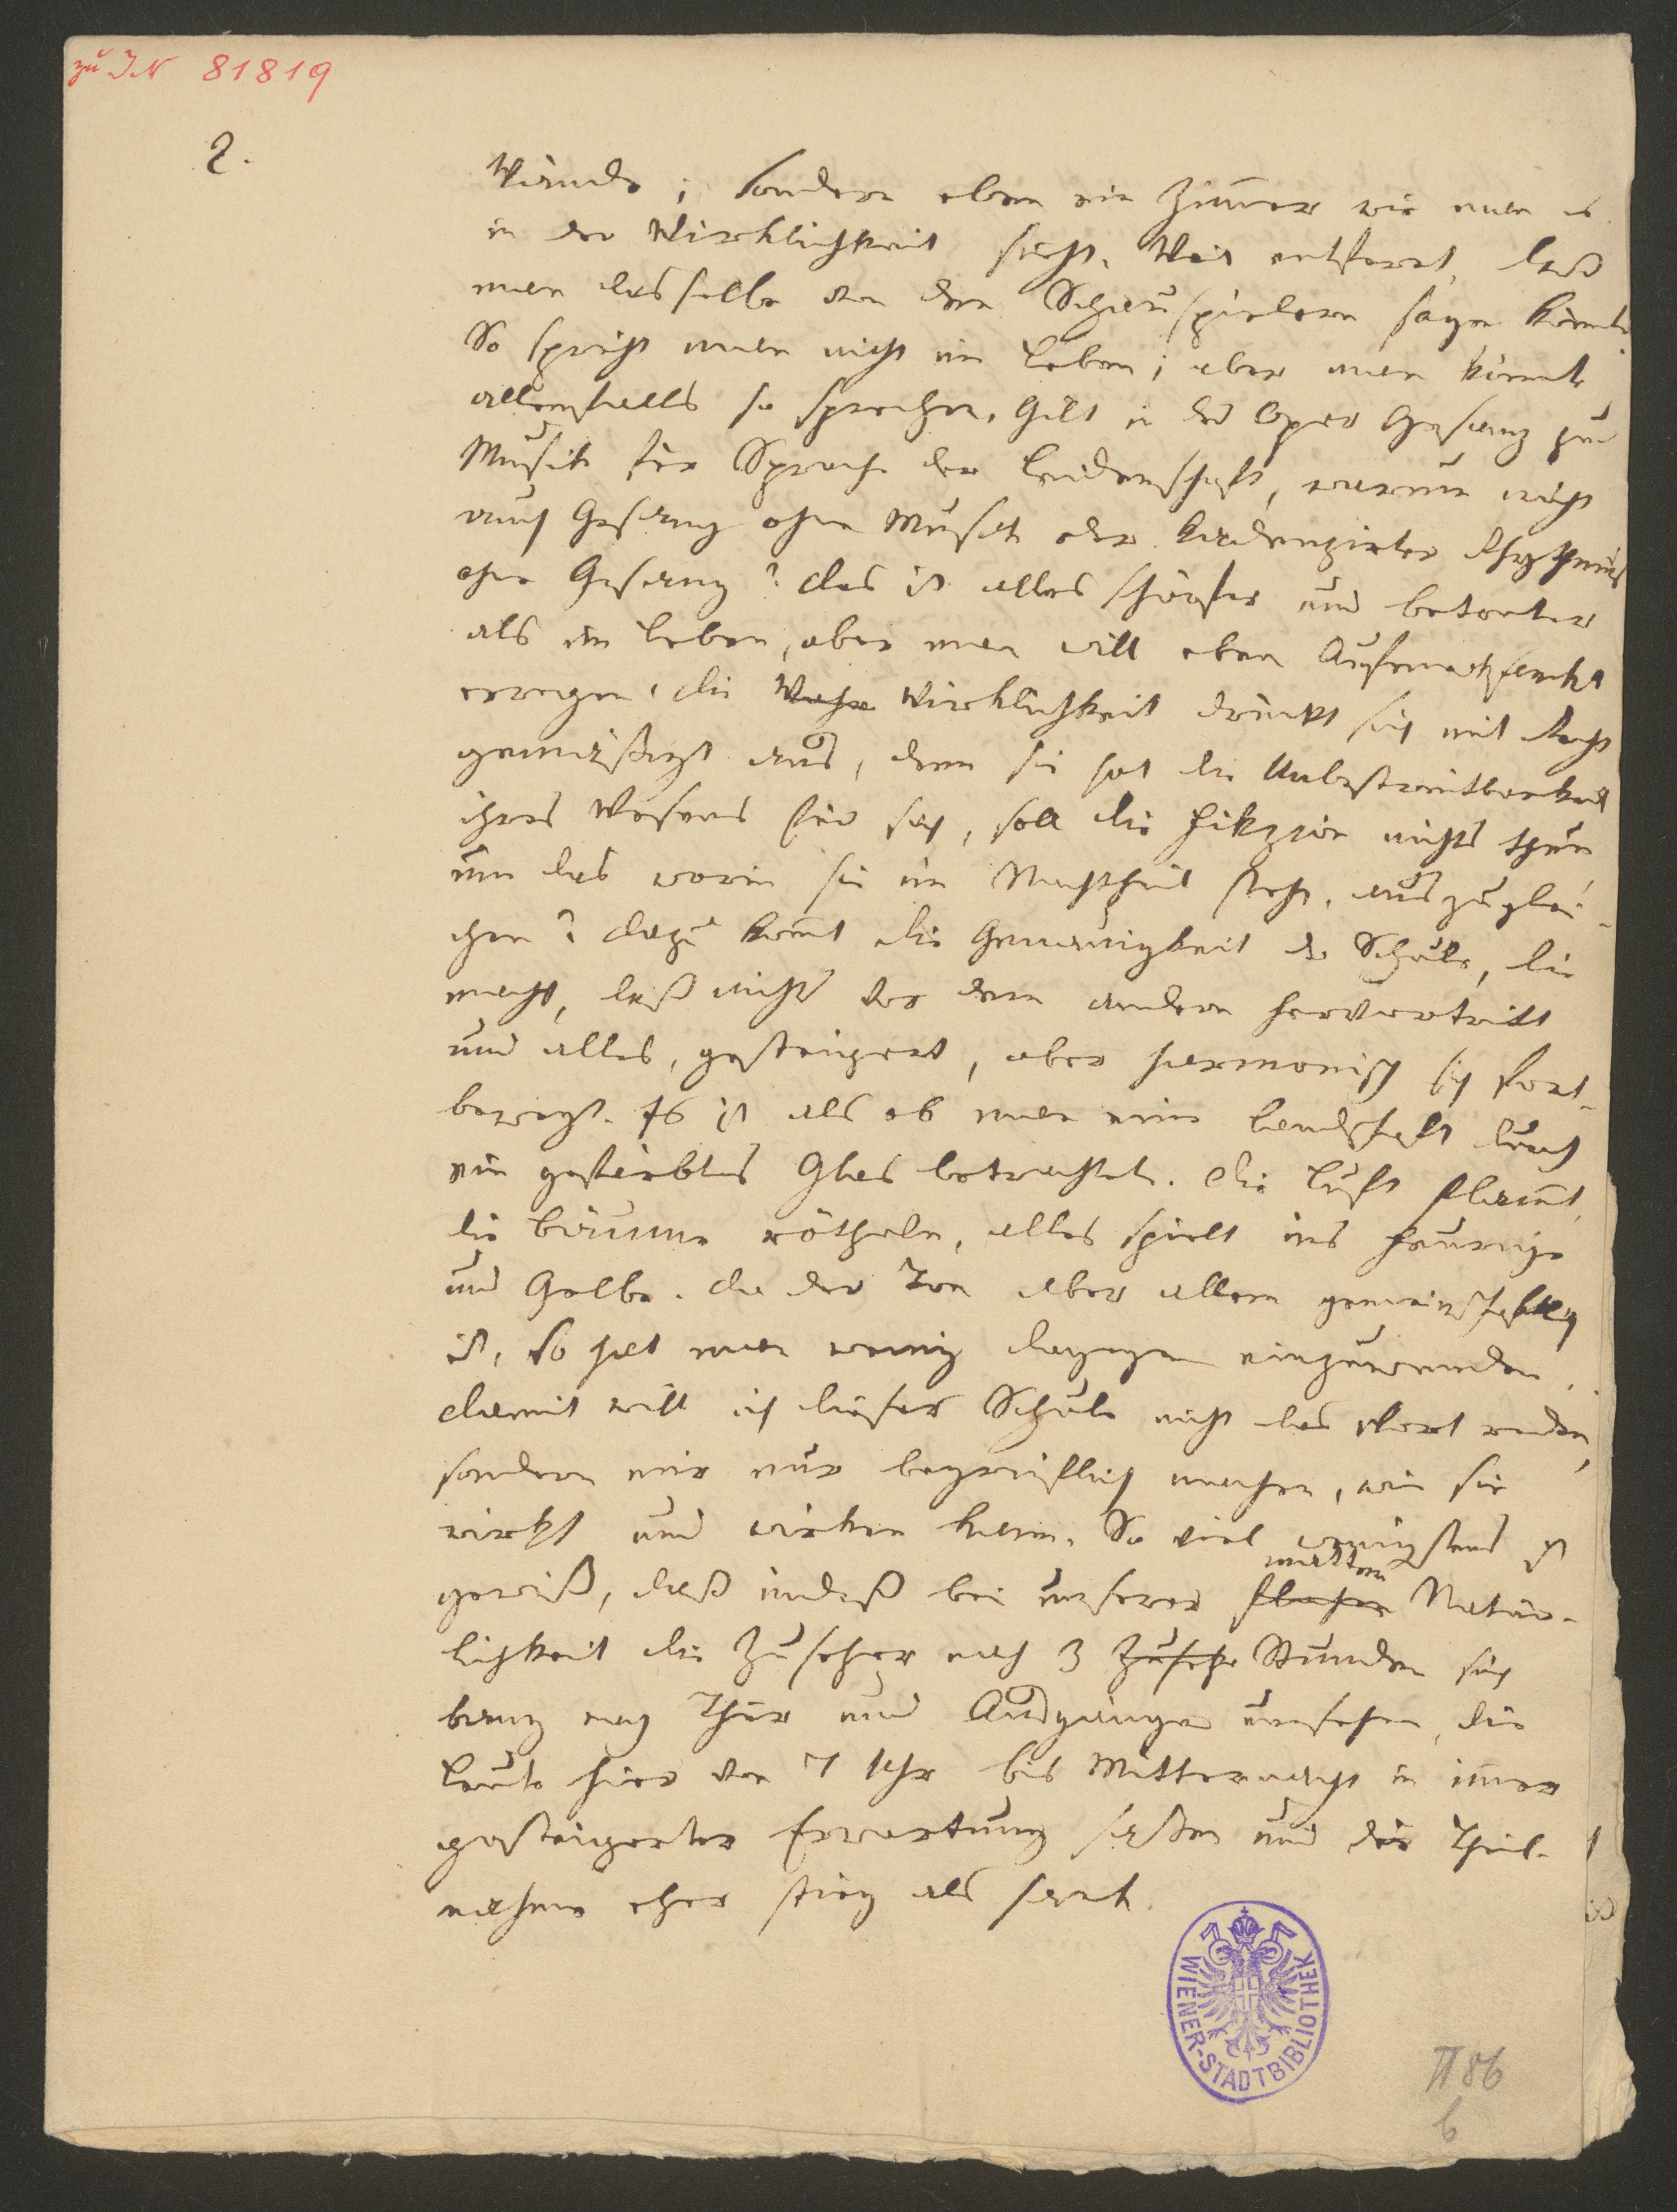 zu IN 81819
2.
Wände; sondern eben ein Zimer wie man es
in der Wirklichkeit sieht. Weit entfernt, daß
man dasselbe von den Schauspielern sagen könnte.
So spricht man nicht im Leben; aber man könnte
allenfalls so sprechen. Gilt in der Oper Gesang zur
Musik für Sprache der Leidenschaft, warum nicht
auch Gesang ohne Musik oder kadenzirter Rhythmus
ohne Gesang? das ist alles schärfer und betonter
als im Leben, aber man will eben Aufmerksamkt
erregen. die Wahre Wirklichkeit drückt sich mit Recht
gemäßigt aus, denn sie hat die Unbestreitbarkeit
ihres Wesens für sich, soll die Fikzion nichts thun
um das worin sie im Nachtheil steht, auszuglei-
chen? dazu komt die Genauigkeit der Schule, die
macht, daß nichts vor dem andern hervortritt
und alles, gesteigert, aber harmonisch sich fort-
bewegt. Es ist als ob man eine Landschaft durch
ein gefärbtes Glas betrachtete. die Luft flamt,
die Bäume rötheln, alles spielt ins Feurige
und Gelbe. da der Ton aber allem gemeinschaftlich
ist, so hat man wenig dagegen einzuwenden.
damit will ich dieser Schule nicht das Wort reden,
sondern mir nur begreiflich machen, wie sie
wirkt und wirken kann. So viel wenigstens ist
matten
gewiß, daß indeß bei unserer flachen Natür-
lichkeit die Zuseher nach 3 Zusehe Stunden sich
bang nach Thür und Ausgängen umsehen, die
Leute hier von 7 Uhr bis Mitternacht in imer
gesteigerter Erwartung saßen und die Theil-
nahme eher stieg als sank.
WIENER-STADTBIBLIOTHEK
II 86
b